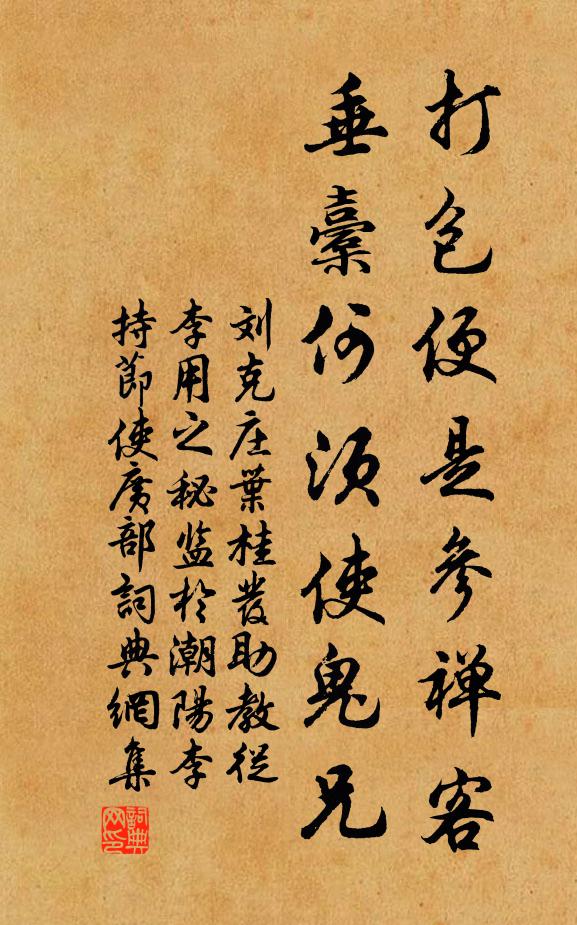 打包便是參禅客
垂橐何須使鬼兄
刘克庄葉桂發助教從
李用之秘监於潮陽李
持節使廣部詞典網集
詞典網印